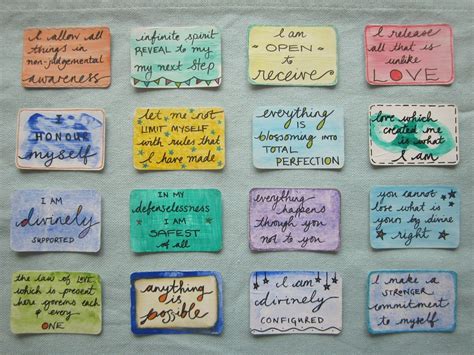 I allow all
things in
non-judgemental
awareness
infinite spirit
REVEAL to my
my next Step
I am
OPEN
to
receive
I release
all that
is unlike
LOVE
I
HONOUR
myself
let me not
LIMIT MYSELF
with rules that
I have made
everything
is
blossoming INTO
TOTAL
PERFECTION
love which
created me
is what
I am
I AM
divinely
SUPPORTED
IN MY
defenselessness
I AM
SAFEST
of all
everything
happens
through you
not to you
you cannot
lose what is
yours by divine
right
the law of LOVE
which is present
here governs each
& every
ONE
anything
is
possible
I am
divinely
CONFIGURED
I make a
STRONGER
commitment
to myself